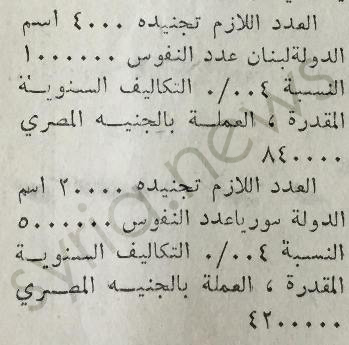 العدد اللازم تجنيده ٤٠٠٠ اسم
الدولةلبنان عدد النفوس ١٠٠٠٠٠٠
النسبة ٠/٠٠٤ التكاليف السنوية
المقدرة ، العملة بالجنيه المصري
٨٤٠٠٠٠
العدد اللازم تجنيده ٢٠٠٠٠ اسم
الدولة سورياعدد النفوس ٥٠٠٠٠٠٠
النسبة ٠/٠٠٤ التكاليف السنوية
المقدرة ، العملة بالجنيه المصري
٤٢٠٠٠٠٠
syria.news